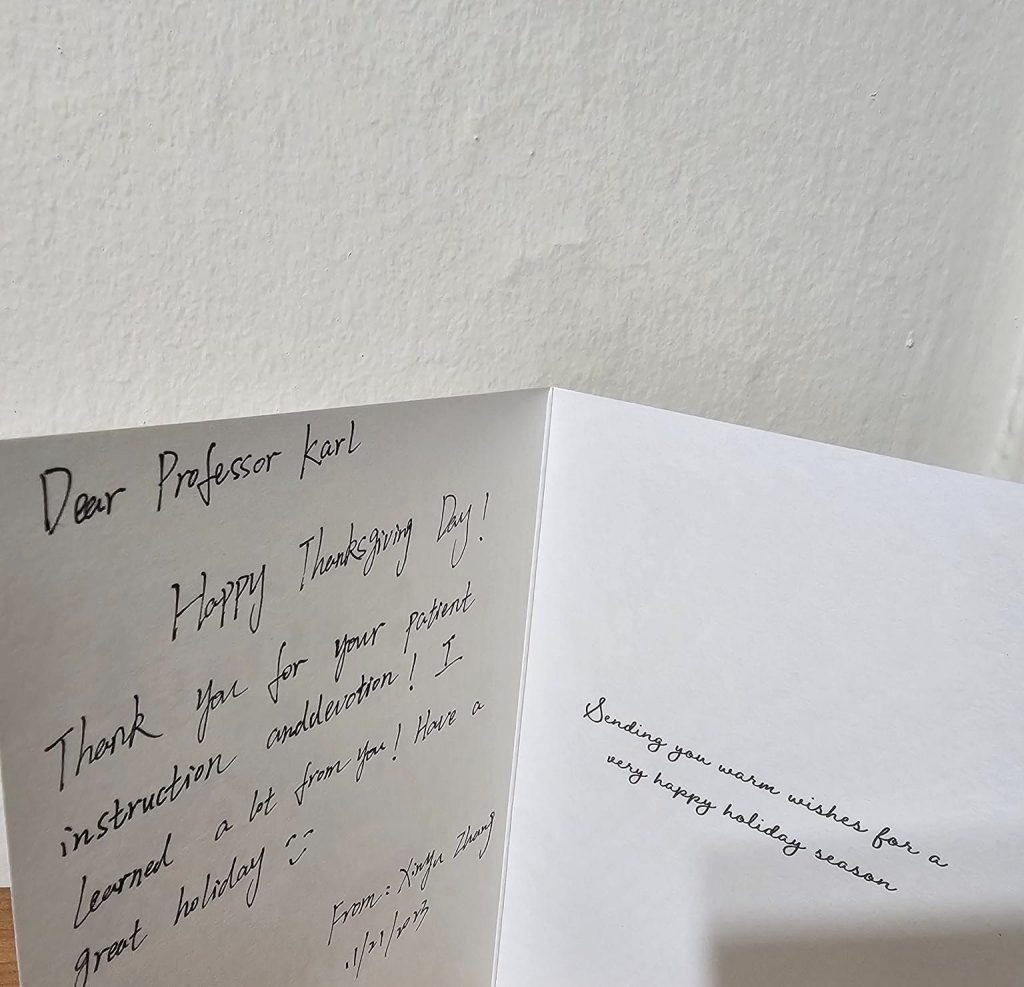 Dear Professor Karl
Happy Thanksgiving Day!
Thank you for your patient
instruction anddevotion! I
learned a lot from you! Have a
great holiday :)
From: Xinyu Zhang
11/21/2023
Sending you warm wishes for a
very happy holiday season